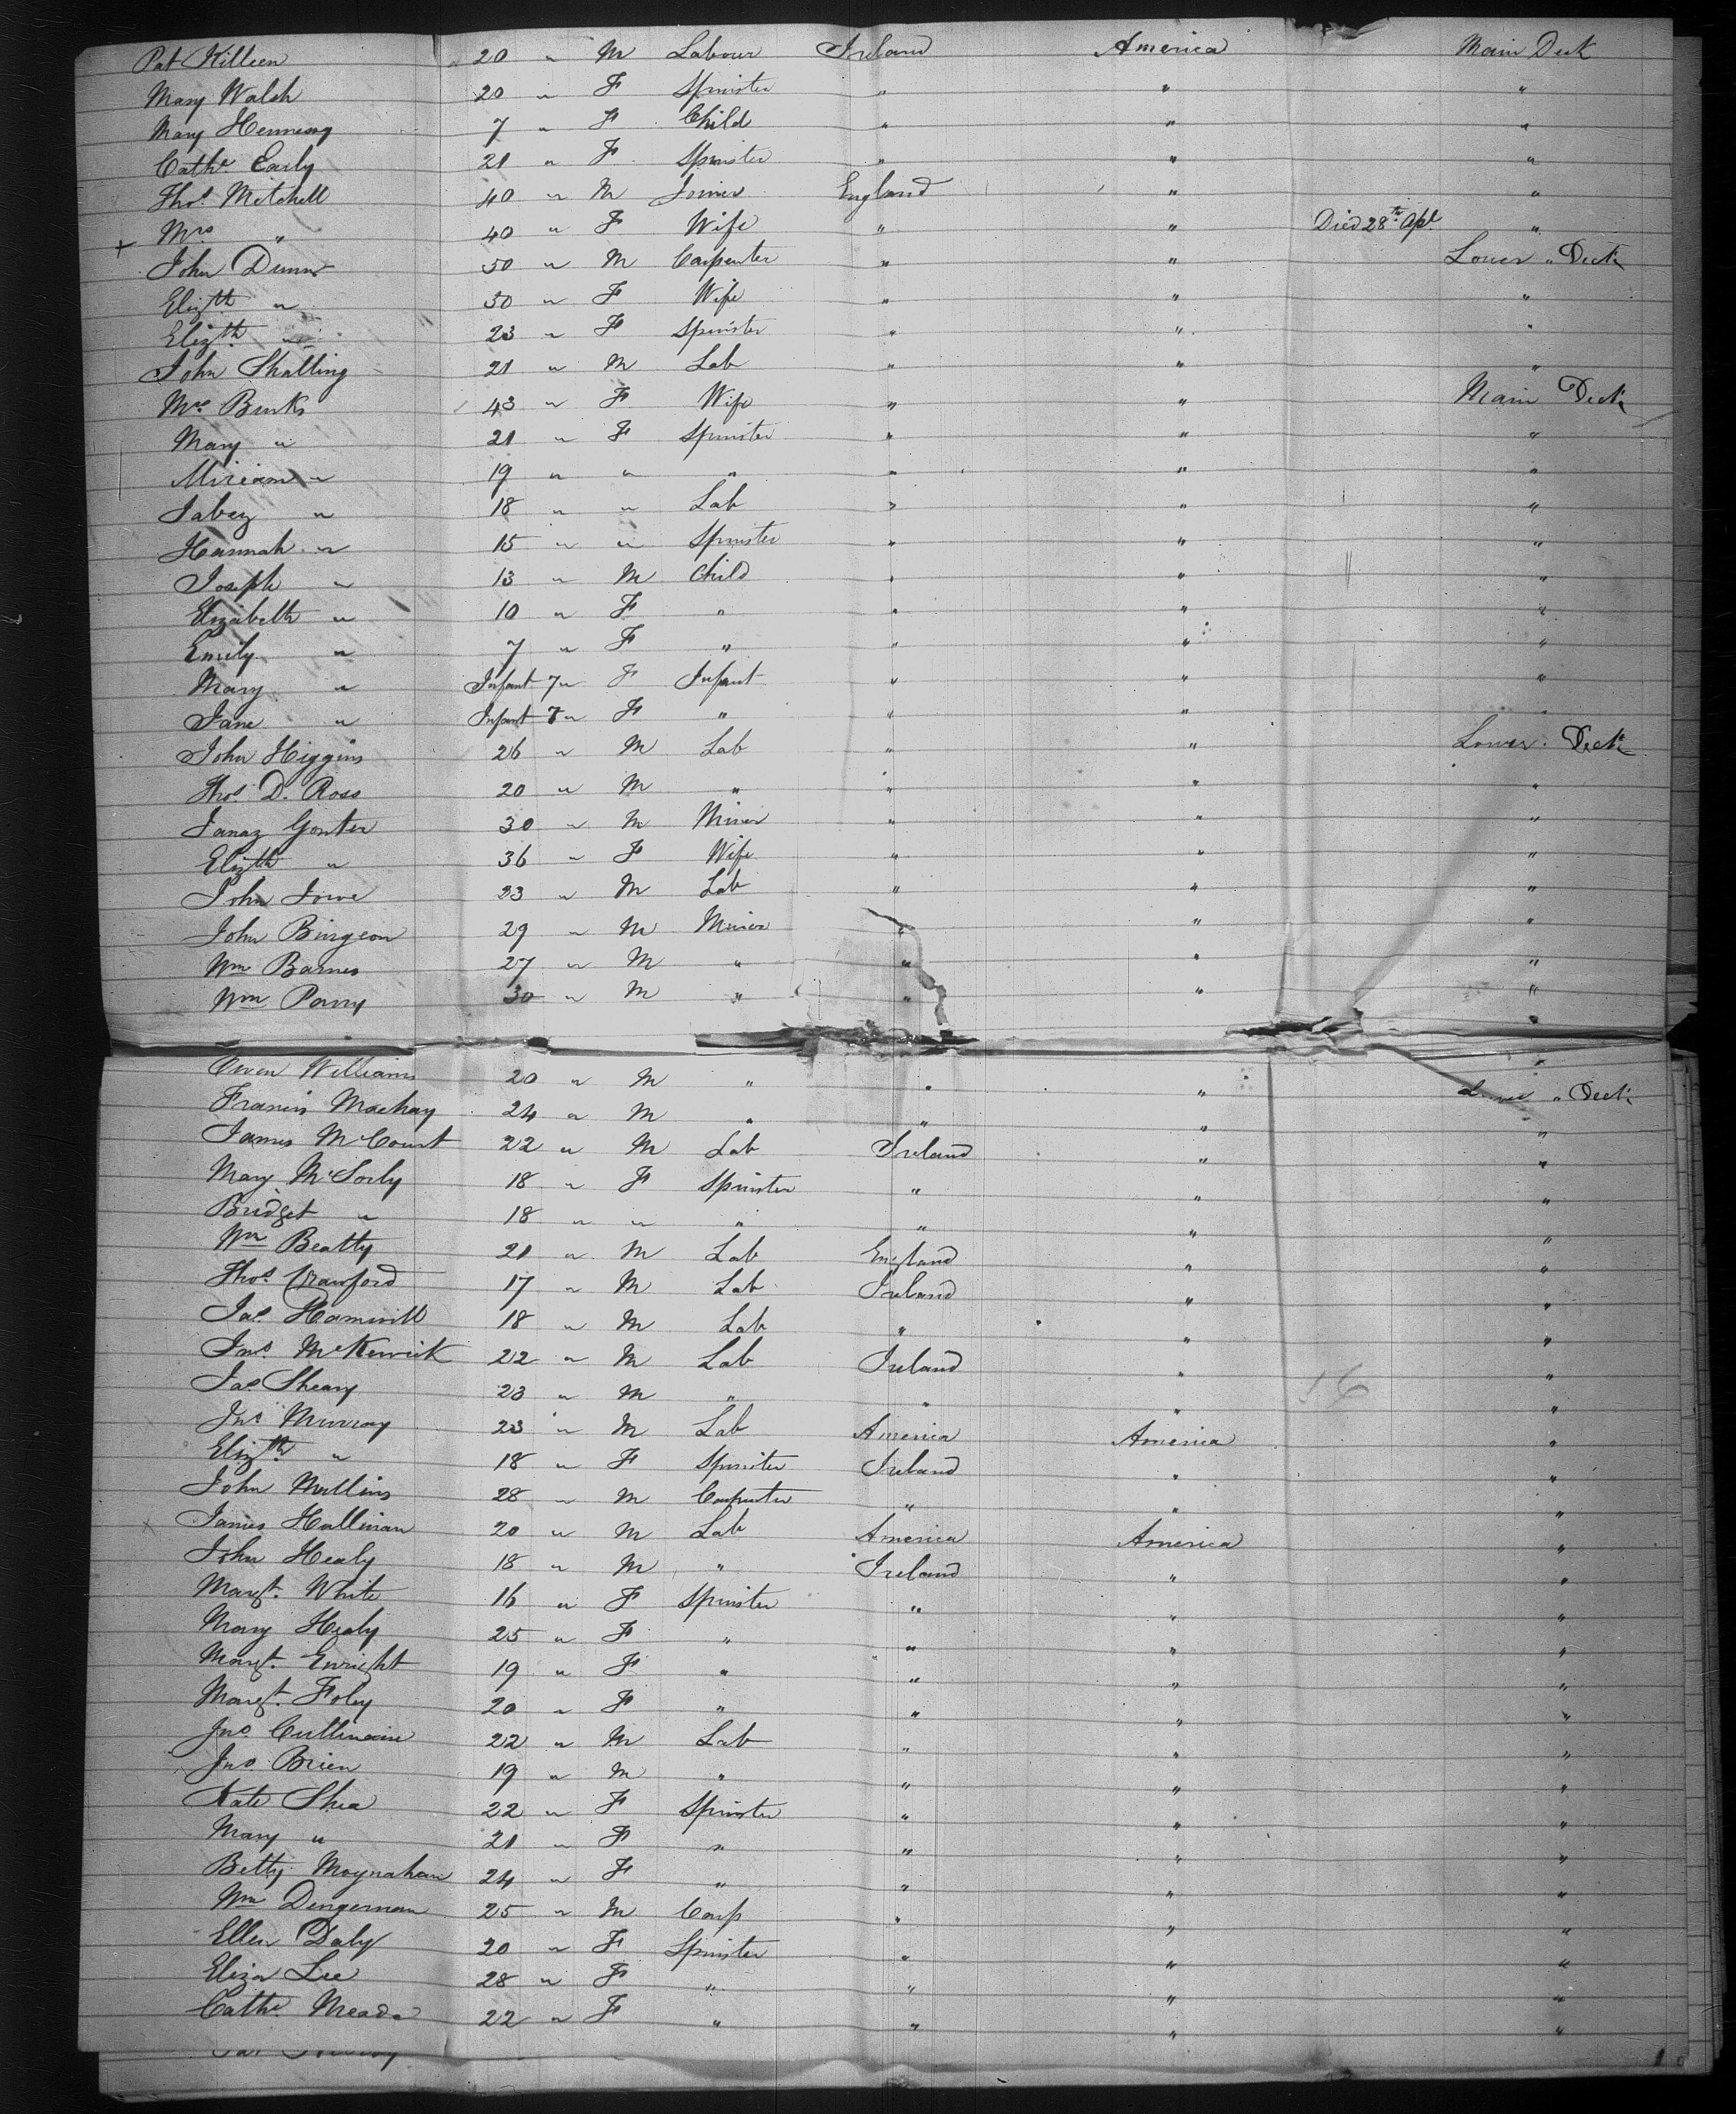 Pat Killeen 20 " M Labour Ireland America Main Deck
Mary Walsh 20 " F Spinster " " "
Mary Hennessy 7 " F Child " " "
Cathe Early 21 " F Spinster " " "
Thos Mitchell 40 " M Joiner England " "
+ Mrs " 40 " F Wife " " Died 28th Apl "
John Dunn 50 " M Carpenter " " Lower " Deck
Elizth " 50 " F Wife " " "
Elizth " 23 " F Spinster " " "
John Shalling 21 " M Lab " " "
Mrs Burks 43 " F Wife " " Main Deck
Mary " 21 " F Spinster " " "
Miriam " 19 " " " " " "
Jabez " 18 " " Lab " " "
Hannah " 15 " " Spinster " " "
Joseph " 13 " M Child " " "
Elizabeth " 10 " F " " " "
Emily " 7 " F " " " "
Mary " Infant 7 " F Infant " " "
Jane " Infant 7 " F " " " "
John Higgins 26 " M Lab " " Lower Deck
Thos D. Ross 20 " M " " " "
Gonter 30 " M Miner " " "
Elizth " 36 " F Wife " " "
John 23 " M Lab " " "
John Burgeon 29 " M Miner " " "
Wm Barnes 27 " M " " " "
Wm Parry 30 " M " " " "
Owen Williams 20 " M " " " Lower " Deck
Francis Mackay 24 " M " " " "
James McCourt 22 " M Lab Ireland " "
Mary McSorly 18 " F Spinster " " "
Bridget " 18 " " " " " "
Wm Beatty 21 " M Lab England " "
Thos Crawford 17 " M Lab Ireland " "
Jas 18 " M Lab " " "
Jas McKerwick 22 " M Lab Ireland " "
Jas Sheary 23 " M " " " 16 "
Jno Murray 23 " M Lab America America "
Elizth " 18 " F Spinster Ireland " "
John Mullins 28 " M Carpenter " " "
James Hallinan 20 " M Lab America America "
John Healy 18 " M " Ireland " "
Margt. White 16 " F Spinster " " "
Mary Healy 25 " F " " " "
Margt. Enright 19 " F " " " "
Margt. Foley 20 " F " " " "
Jno Cullinane 22 " M Lab " " "
Jno Brien 19 " M " " " "
Kate Shea 22 " F Spinster " " "
Mary " 21 " F " " " "
Betty Moynahan 24 " F " " " "
Wm Dengernan 25 " M Carp " " "
Ellen Daly 20 " F Spinster " " "
Eliza Lee 28 " F " " " "
Cathe Meade 22 " F " " " "